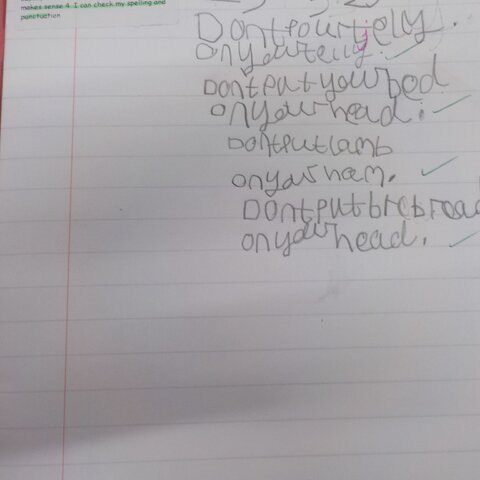 makes sense 4. I can check my spelling and
punctuation
Dont pour jelly.
on your telly.
Dont put your bed
on your head.
Dont put lamb
on your ham.
Dont put bre bread
on your head.